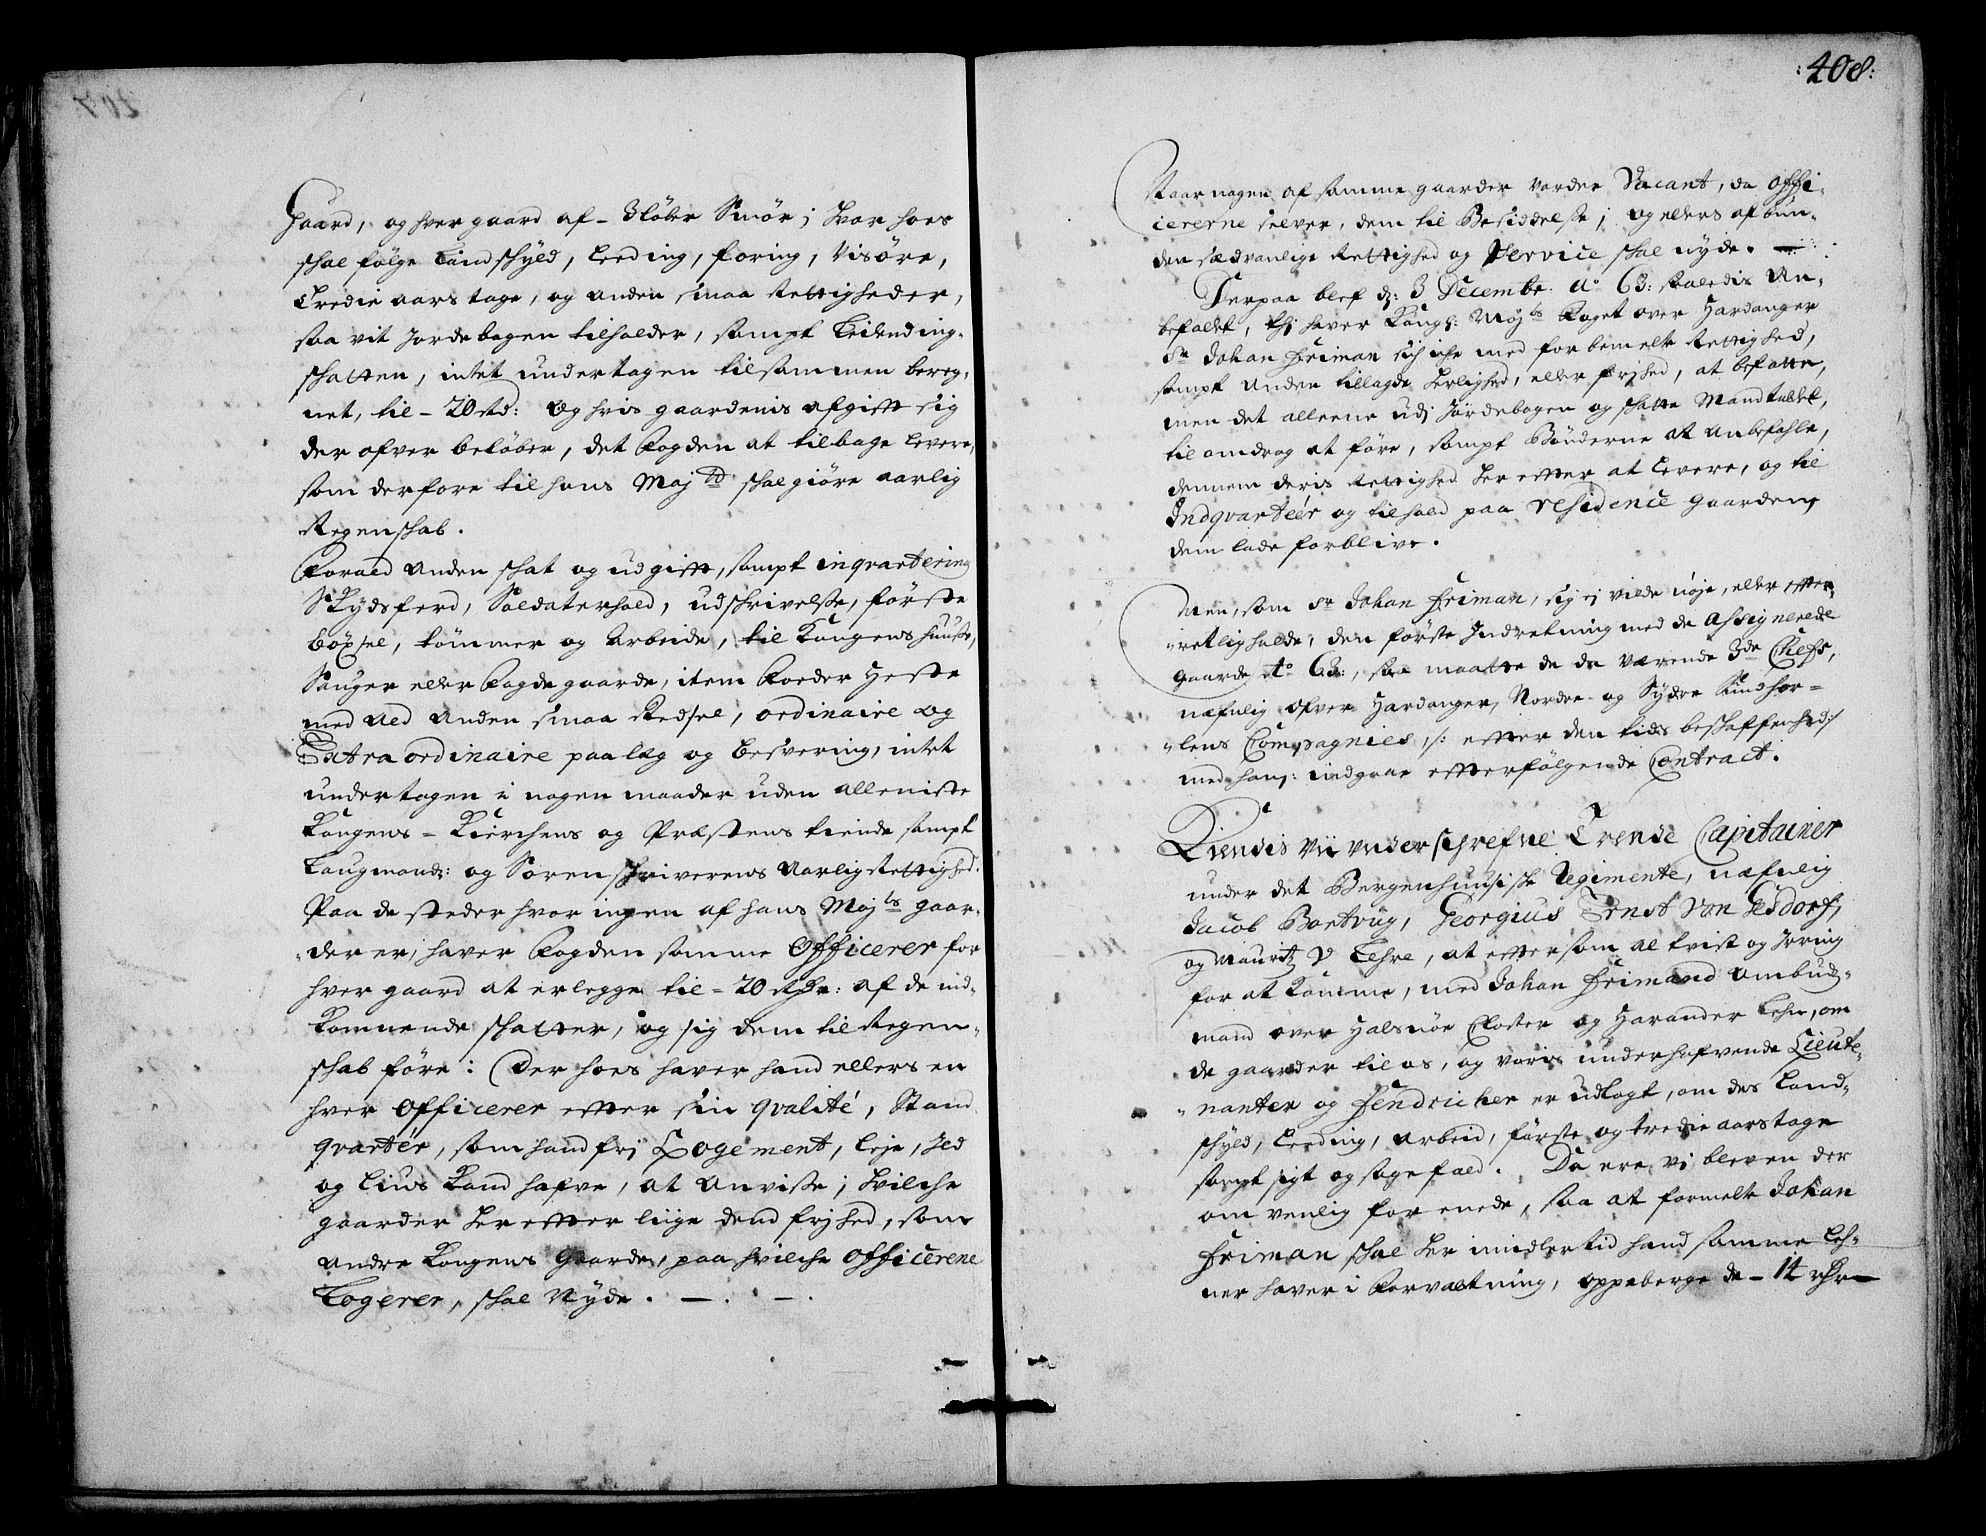 gaard, og hver gaard af - 3 löber Smör; hvor hoes
schal følge Landschyld, Leeding, foring, Visöre,
Tredie aars tage, og anden smaa Rettigheder,
saa vit Jordebogen tilholder, sampt Leilending-
schatten, intet undertagen tilsammen bereg-
net, til - 20 rd: og hvis gaardenis afgifft sig
der ofver beløber, det Fogden at tilbage levere,
som derfore til hans Maj:td schal giöre aarlig
Regenschab.
For ald anden schat og udgifft, sampt inqvartering
Skydsferd, Soldaterhold, udschrivelsse, förste
böxsel, tömmer og Arbeide, til Kongens huusse,
Sauger eller Fogde gaarde, item Foeder Heste
med ald anden smaa Redsel, ordinaire og
Extra ordinaire paalæg og besvering, intet
undertagen i nogen maader uden alleniste
Kongens - Kierchens og Præstens tiende sampt
Laugmands: og Sorenschriverens Aarlige Rettighed.
Paa de steder hvor ingen af hans Maj:ts gaar-
der er, haver Fogden samme Officerer for
hver gaard at erlegge til - 20 Rdr: af de ind-
kommende schatter, og sig dem til Regen-
schab före: Der hoes haver hand ellers en
hver Officerer effter sin qvalité, Stand
qvartér, som hand frj Logement, leje, Ild
og Lius Kand hafve, at anvisse; hvilche
gaarder her effter liige dend frjhed, som
andre Kongens Gaarde, paa hvilche Officerene
Logerer, schal Nyde. — . — .
:408:
Naar nogen af samme gaarder vorder Vacant, da Offi-
cererne selver, dem til Besiddelsse; og ellers af bøn-
den sædvanlige Rettighed og Service schal nyde. —
Derpaa blef d: 3 Decembr. a° 63: saaledis An-
befaldet, thj haver Kongl: Maj:ts Foget over Hardanger
Sr Johan Friman sig iche med forbemelte Rettighed,
sampt anden tillagde herlighed, eller frjhed, at befatte,
men det alleene udj Jördebogen og schatte Mandtallet,
til omdrag at före, sampt Bönderne at anbefahle,
dennem deris Rettighed her effter at Levere, og til
Indqvartéer og tilhold paa residence gaarden,
dem lade forblive.
Men, som Sr Johan Friman, sig ej vilde nöje, eller effter-
retlig holde, den förste Indretning med de assignerede
gaarde A° 63:, saa maatte de da værende 3de Chefs,
næfnlig ofver Hardanger, Nordre- og Sydre Sundhor-
lens Compagnies, /: effter den tids beschaffenhed:/
med ham: indgaae effterfölgende Contract.
Kiendis vii underschrefne Trende Capitainer
under det Bergenhuusische Regimente, næfnlig
Jacob Bortvig, Georgius Ernst von Gesdorf,
og Mauritz V Lehre, at efftersom al tvist og Irring
for at komme, med Johan Frimand Ambud-
mand over Halsnöe Closter og Harander Lehn, om
de gaarder til os, og voris underhafvende Lieute-
nanter og Fendricher er udlagt, om des Land-
schyld, Leeding, Arbeid, förste og tredie aars tage
sampt sigt og sagefald. Da ere vi bleven der
om venlig forenede, saa at formelte Johan
Friman schal her imidlertid hand samme Leh-
ner haver i Forvaltning, oppeberge de - 14 rdr —